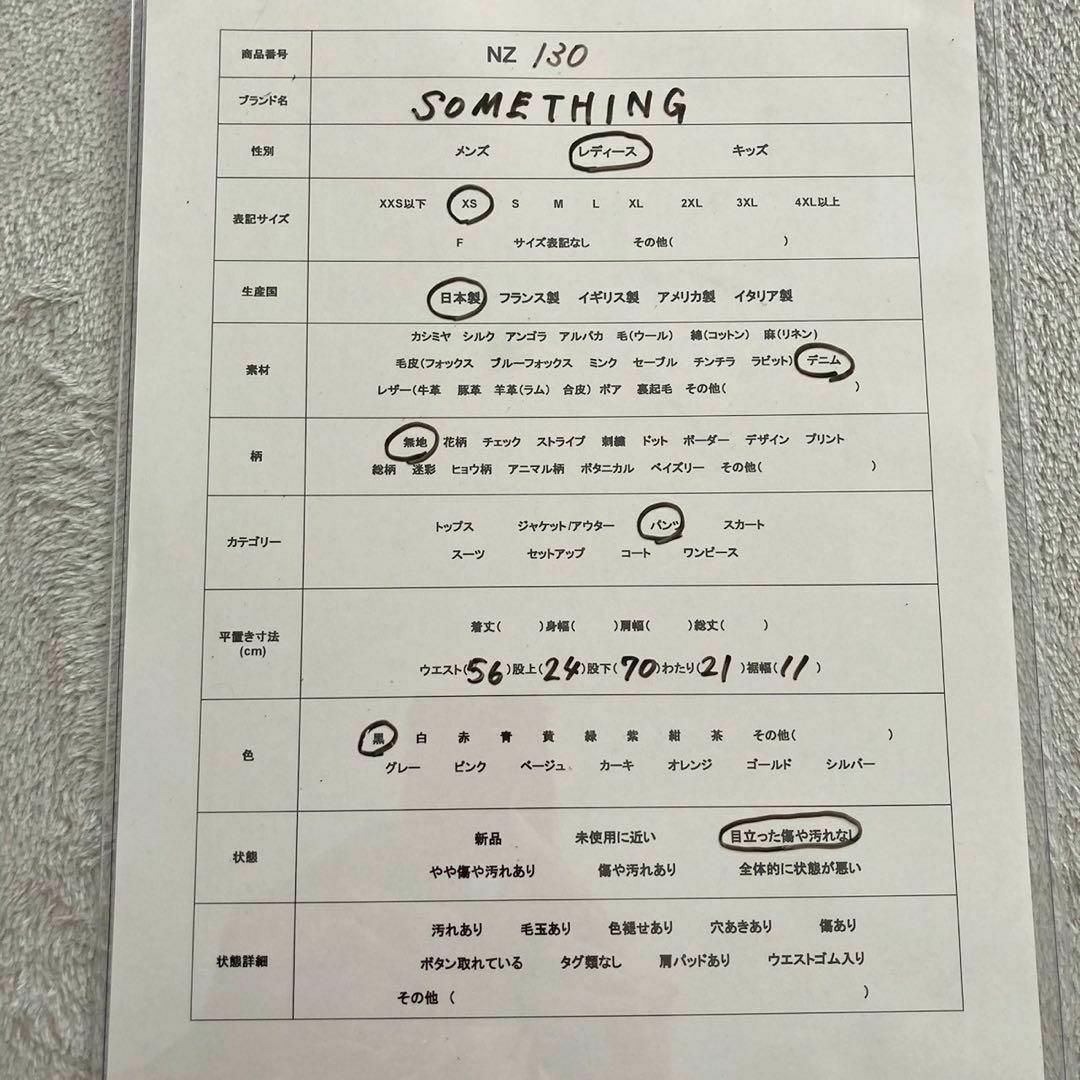 商品番号 NZ 130
ブランド名 SOMETHING
性別 メンズ レディース キッズ
表記サイズ XXS以下 XS S M L XL 2XL 3XL 4XL以上
F サイズ表記なし その他( )
生産国 日本製 フランス製 イギリス製 アメリカ製 イタリア製
素材 カシミヤ シルク アンゴラ アルパカ 毛(ウール) 綿(コットン) 麻(リネン)
毛皮(フォックス ブルーフォックス ミンク セーブル チンチラ ラビット) デニム
レザー(牛革 豚革 羊革(ラム) 合皮) ボア 裏起毛 その他( )
柄 無地 花柄 チェック ストライプ 刺繍 ドット ボーダー デザイン プリント
総柄 迷彩 ヒョウ柄 アニマル柄 ボタニカル ペイズリー その他( )
カテゴリー トップス ジャケット/アウター パンツ スカート
スーツ セットアップ コート ワンピース
平置き寸法
(cm)
着丈( )身幅( )肩幅( )総丈( )
ウエスト(56)股上(24)股下(70)わたり(21)裾幅(11)
色 黒 白 赤 青 黄 緑 紫 紺 茶 その他( )
グレー ピンク ベージュ カーキ オレンジ ゴールド シルバー
状態 新品 未使用に近い 目立った傷や汚れなし
やや傷や汚れあり 傷や汚れあり 全体的に状態が悪い
状態詳細 汚れあり 毛玉あり 色褪せあり 穴あきあり 傷あり
ボタン取れている タグ類なし 肩パッドあり ウエストゴム入り
その他 ( )